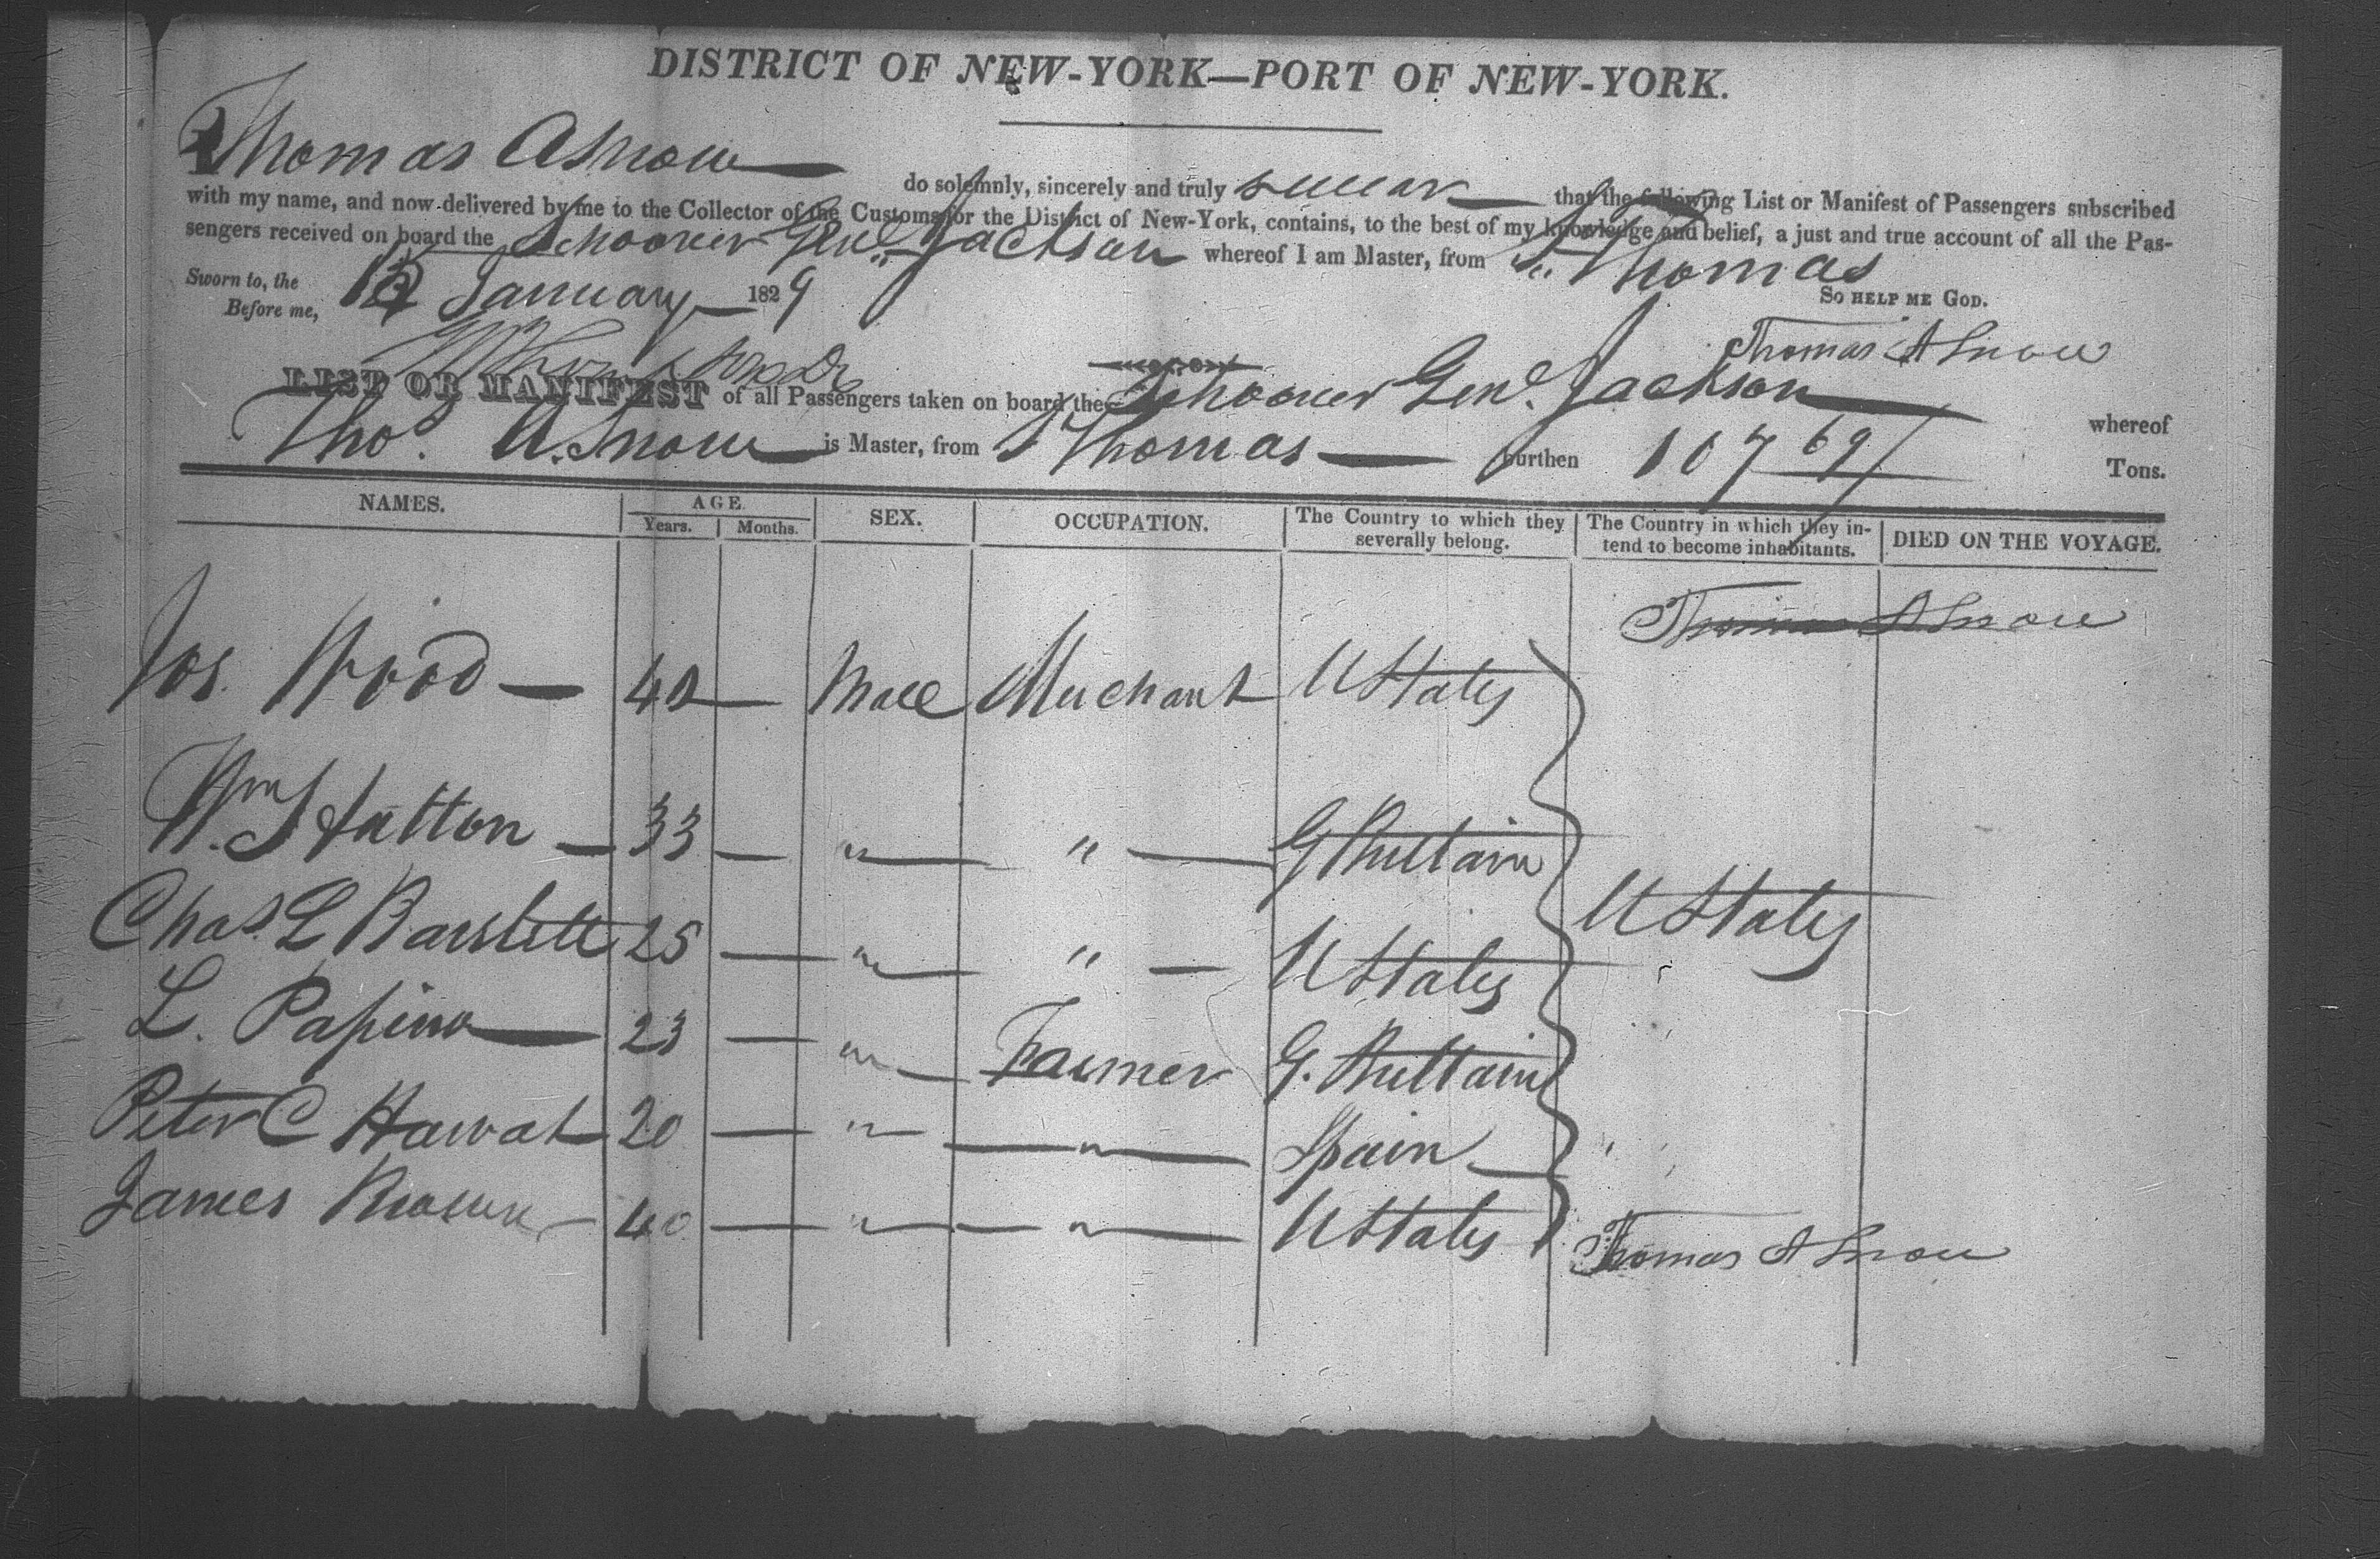 DISTRICT OF NEW-YORK—PORT OF NEW-YORK.
I Thomas A Snow do solemnly, sincerely and truly swear that the following List or Manifest of Passengers subscribed
with my name, and now delivered by me to the Collector of the Customs for the District of New-York, contains, to the best of my knowledge and belief, a just and true account of all the Pas-
sengers received on board the Schooner Genl. Jackson whereof I am Master, from St. Thomas
Sworn to, the January 1829 So HELP ME GOD.
Before me,
Thomas A Snow
LIST OR MANIFEST of all Passengers taken on board the Schooner Genl. Jackson whereof
Thos. A. Snow is Master, from St Thomas burthen 107 69/ Tons.
NAMES. AGE. SEX. OCCUPATION. The Country to which they severally belong. The Country in which they in- tend to become inhabitants. DIED ON THE VOYAGE.
Years. Months.
Thomas A Snow
Jos. Wood — 42 — Male Merchant U States
Wm. — 33 — " — " — G Brittain
Chas. L Bartlett 25 — " — " — U States
U States
L. Papino — 23 — " — Farmer G. Brittain
Peter C 20 — " — " — Spain —
James Brown — 40 — " — " — U States
Thomas A Snow